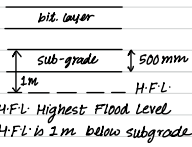 bit. layer
sub-grade 500mm
1m
H.F.L.
H.F.L. Highest Flood Level
H.F.L. is 1m below subgrade